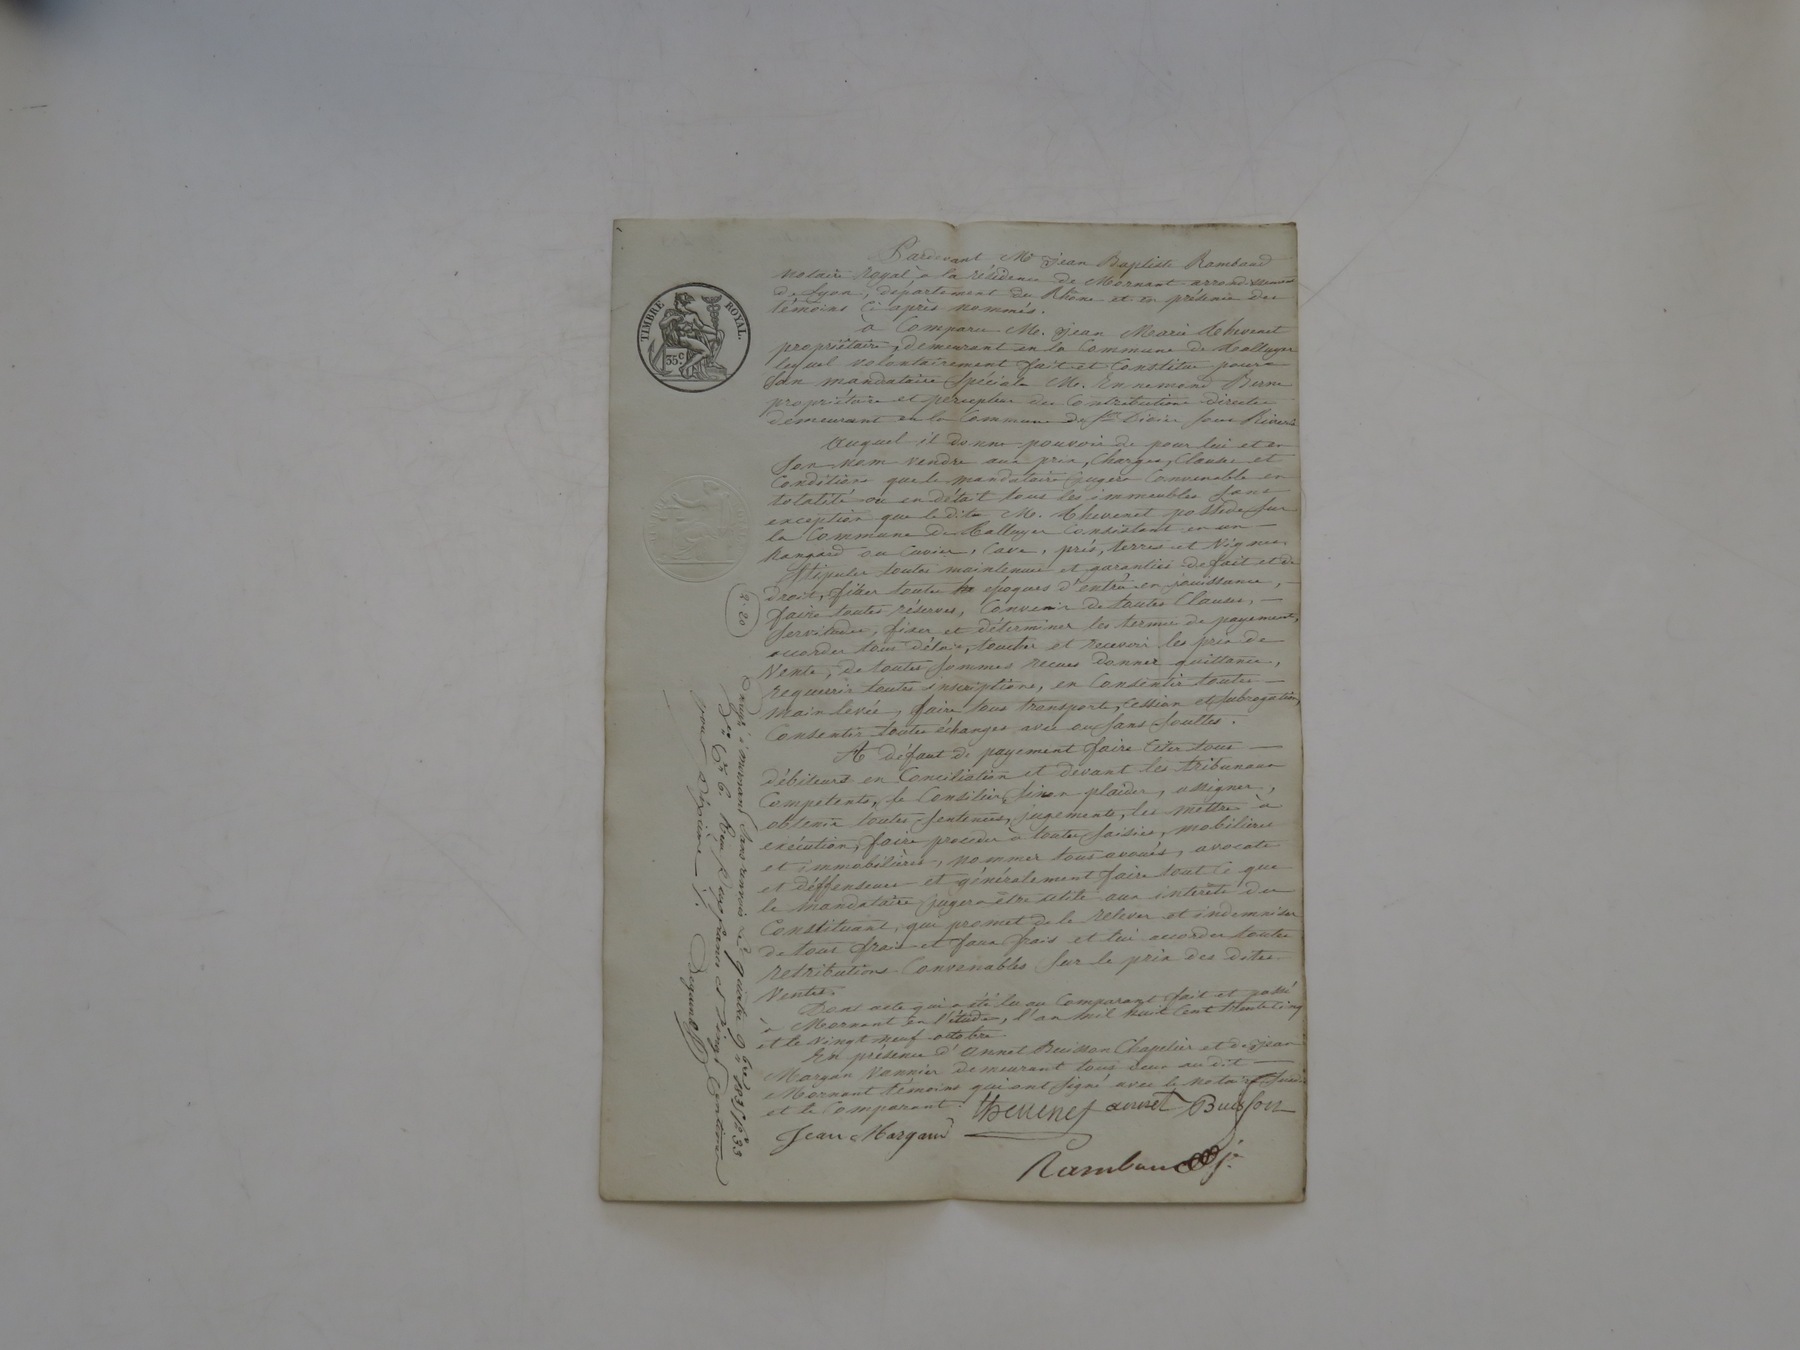 TIMBRE ROYAL.
35c
Pardevant Me Jean Baptiste Rambaud
Notaire Royal à la résidence de Mornant arrondissement
de Lyon, département du Rhône et en présence des
témoins ci après nommés.
à Comparu M. Jean Marie Thevenet
propriétaire, demeurant en la Commune de Talluyer
lequel volontairement fait et Constitue pour
son mandataire spéciale M. Ennemond Berne
propriétaire et percepteur des Contributions directes
demeurant en la Commune de St Didier sous Riverie
Auquel il donne pouvoir de pour lui et en
son nom vendre aux prix, Charges, Clauses et
Conditions que le mandataire jugera Convenable en
totalité ou en détail tous les immeubles sans
exception que le dit M. Thevenet possède sur
la Commune de Talluyer Consistant en un
hangard ou Cuvier, Cave, prés, terres et Vignes.
Stipuler toutes maintenues et garanties de fait et de
droit, fixer toutes les époques d'entré en jouissance,
faire toutes réserves, Convenir de toutes Clauses,
servitudes, fixer et déterminer les termes de payement,
accorder tous délais, toucher et recevoir les prix de
Vente, de toutes sommes recues donner quittance,
requerrir toutes inscriptions, en Consentir toutes
main levée, faire tous transports, Cession et subrogation,
Consentir toutes échanges avec ou sans soultes.
A défaut de payement faire Citer tous
débiteurs en Conciliation et devant les tribunaux
Competents, se Consilier, sinon plaider, assigner,
obtenir toutes sentences, jugements, les mettre à
exécution, faire proceder à toutes saisies, mobilières
et immobilières, nommer tous avoués, avocats
et déffenseurs et généralement faire tout Ce que
le mandataire jugera être utile aux interêts du
Constituant, qui promet de le relever et indemniser
de tous frais et faux frais et lui accorder toutes
retributions Convenables sur le prix des dites
Ventes.
Dont acte qui a été lu au Comparant, fait et passé
à Mornant en l'étude, l'an mil huit Cent trente Cinq
et le vingt neuf octobre
En présence d'Annet Buisson Chapelier et de Jean
Margan Vannier demeurant tous deux au dit
Mornant témoins qui ont signé avec le notaire susdit
et le Comparant.
Thevenet annet Buisson
Jean Margand
Rambaud
2.20
Enregé à Mornant sans renvois le quatre 9bre 1835